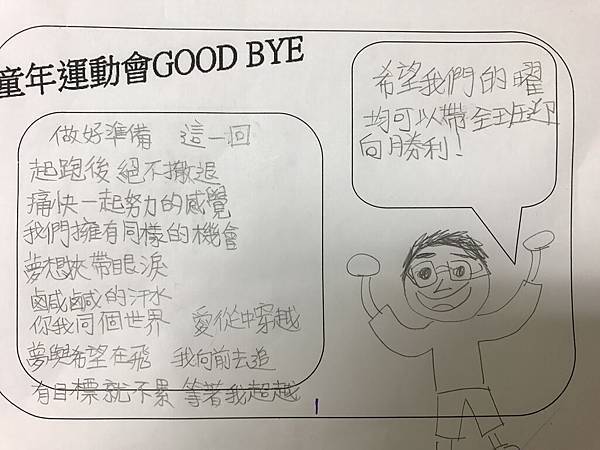 童年運動會GOOD BYE
希望我們的曜
均可以帶全班迎
向勝利!
做好準備 這一回
起跑後絕不撤退
痛快一起努力的感覺
我們擁有同樣的機會
夢想夾帶眼淚
鹹鹹的汗水
你我同個世界 愛從中穿越
夢與希望在飛 我向前去追
有目標就不累 等著我超越